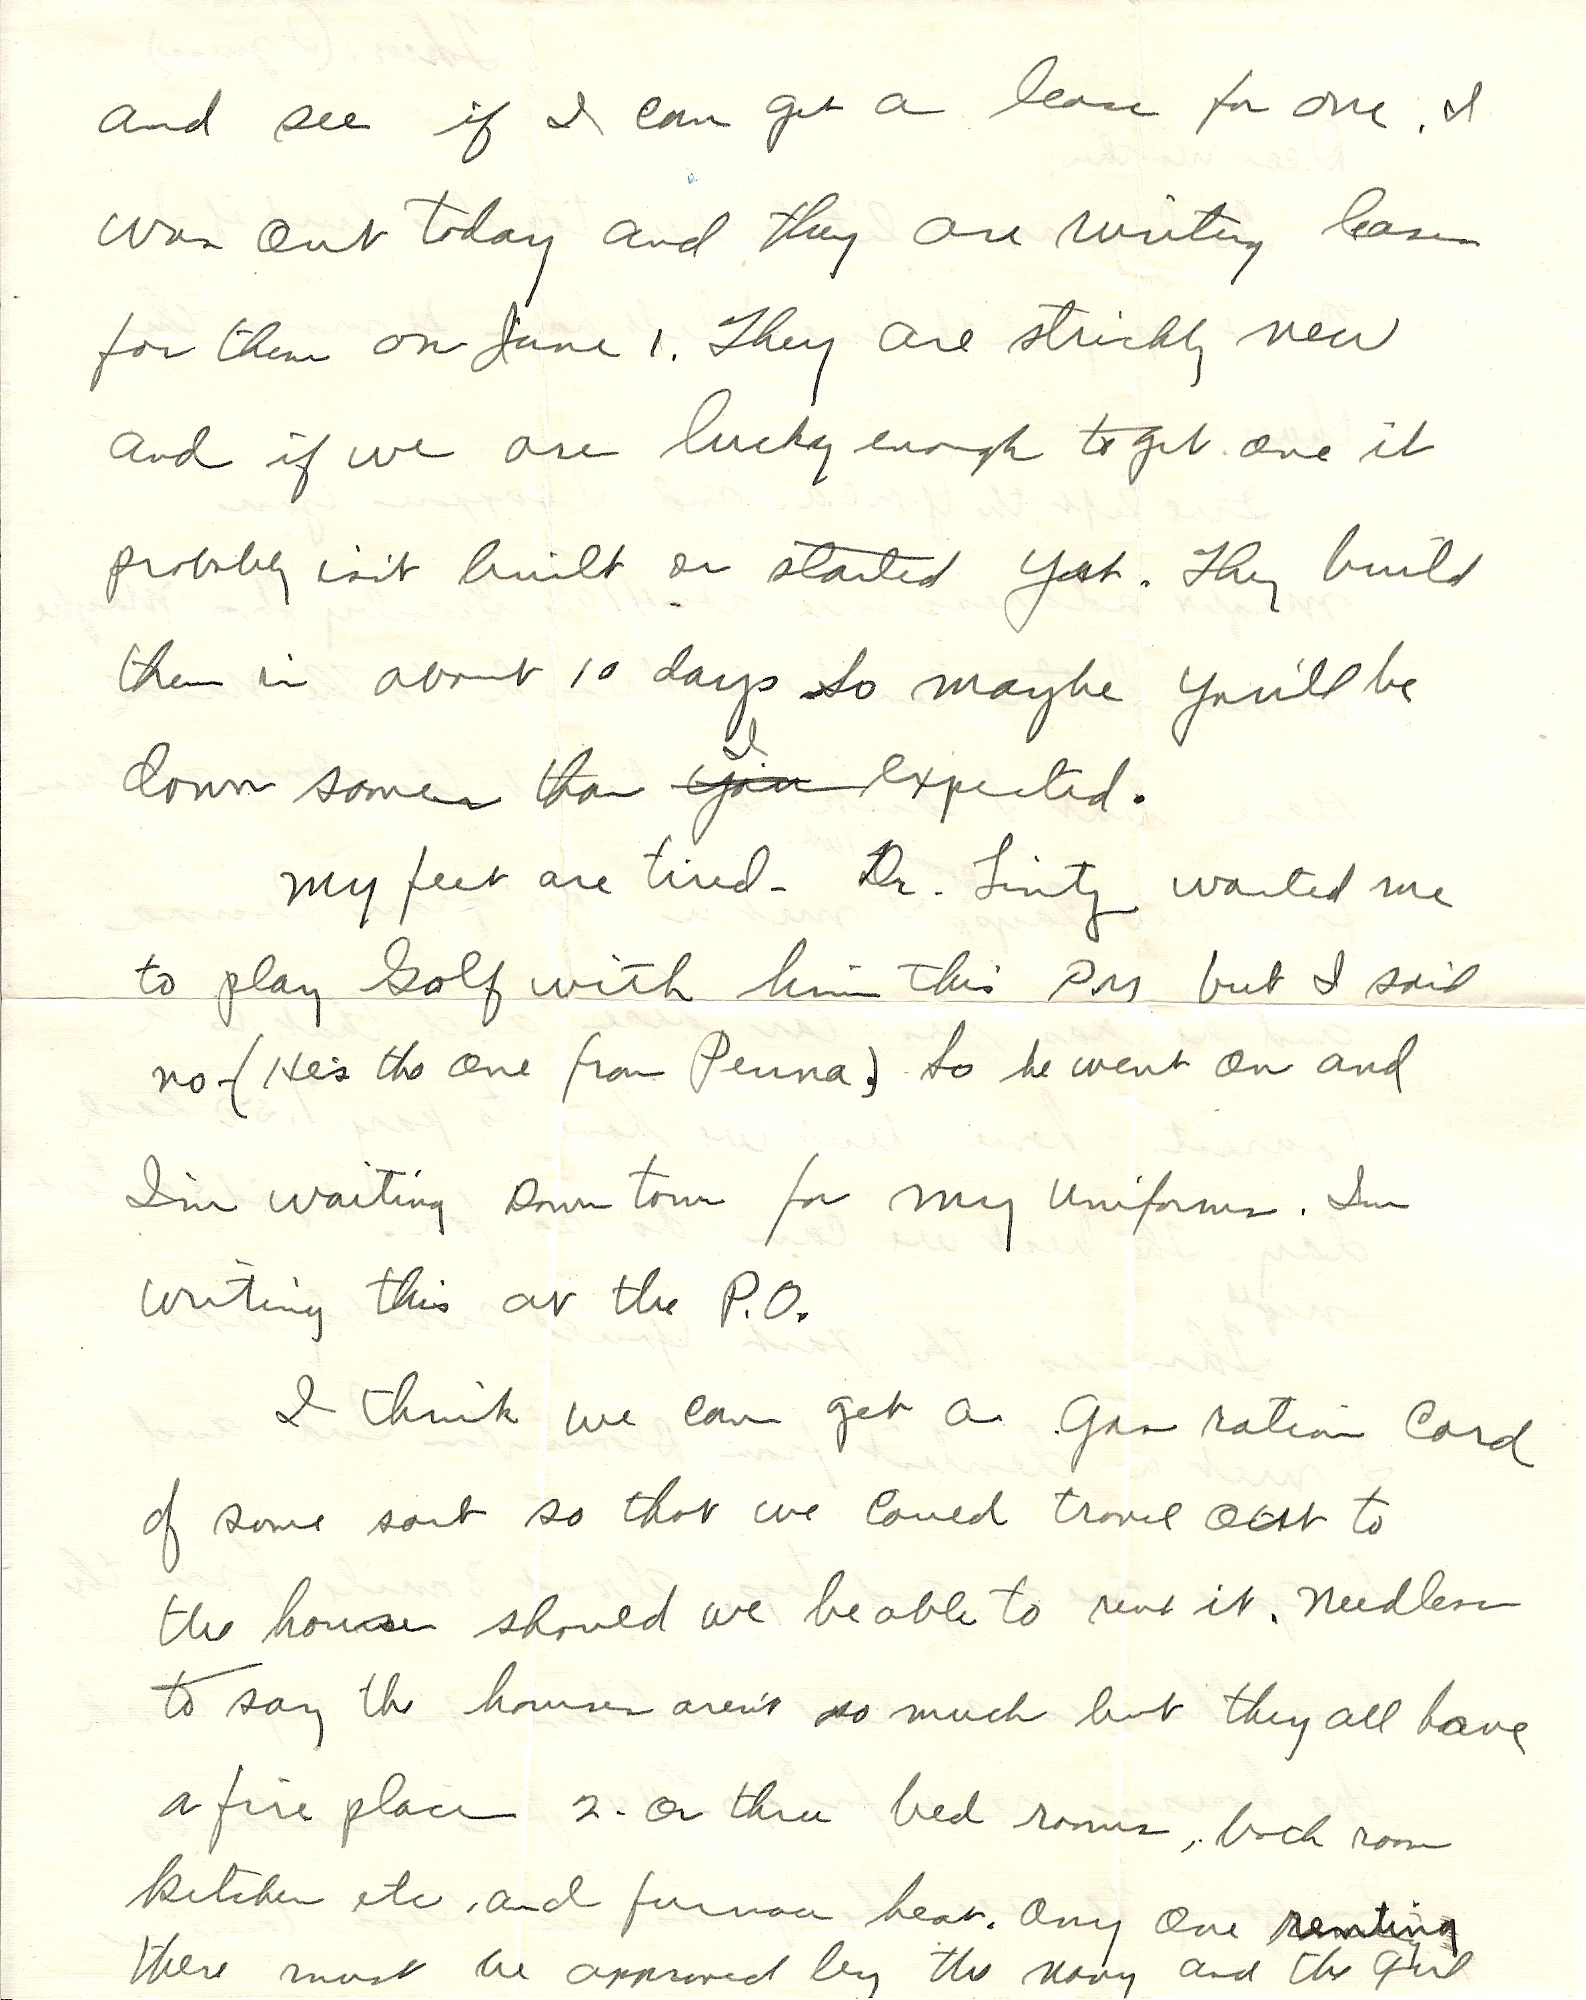 and see if I can get a lease for one. I
was out today and they are writing leases
for them on June 1. They are strickly new
and if we are lucky enough to get one it
probably isn't built or started yet. They build
them in about 10 days so maybe you'll be
down sooner than I expected.
My feet are tired - Dr. wanted me
to play Golf with him this P.M but I said
no - (He's the one from Penna.) So he went on and
I'm waiting down town for my uniforms. I'm
writing this at the P.O.
I think we can get a gas ration card
of some sort so that we could travel out to
the house should we be able to rent it. Needless
to say the houses aren't so much but they all have
a fire place 2 - or three bed rooms, bath room
kitchen etc, and furnace heat. Any one renting
there must be approved by the navy and the girl